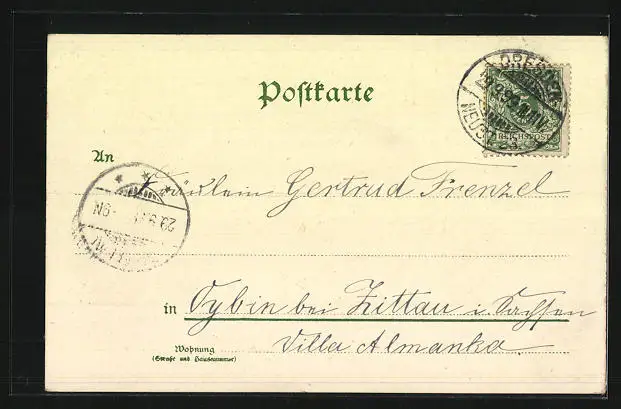 Postkarte
DRESDEN
NEUST
REICHSPOST
An Fräulein Gertrud Frenzel
29.9.
in Oybin bei Zittau i. Sachsen
Wohnung
(Straße und Hausnummer)
Villa Almanka.